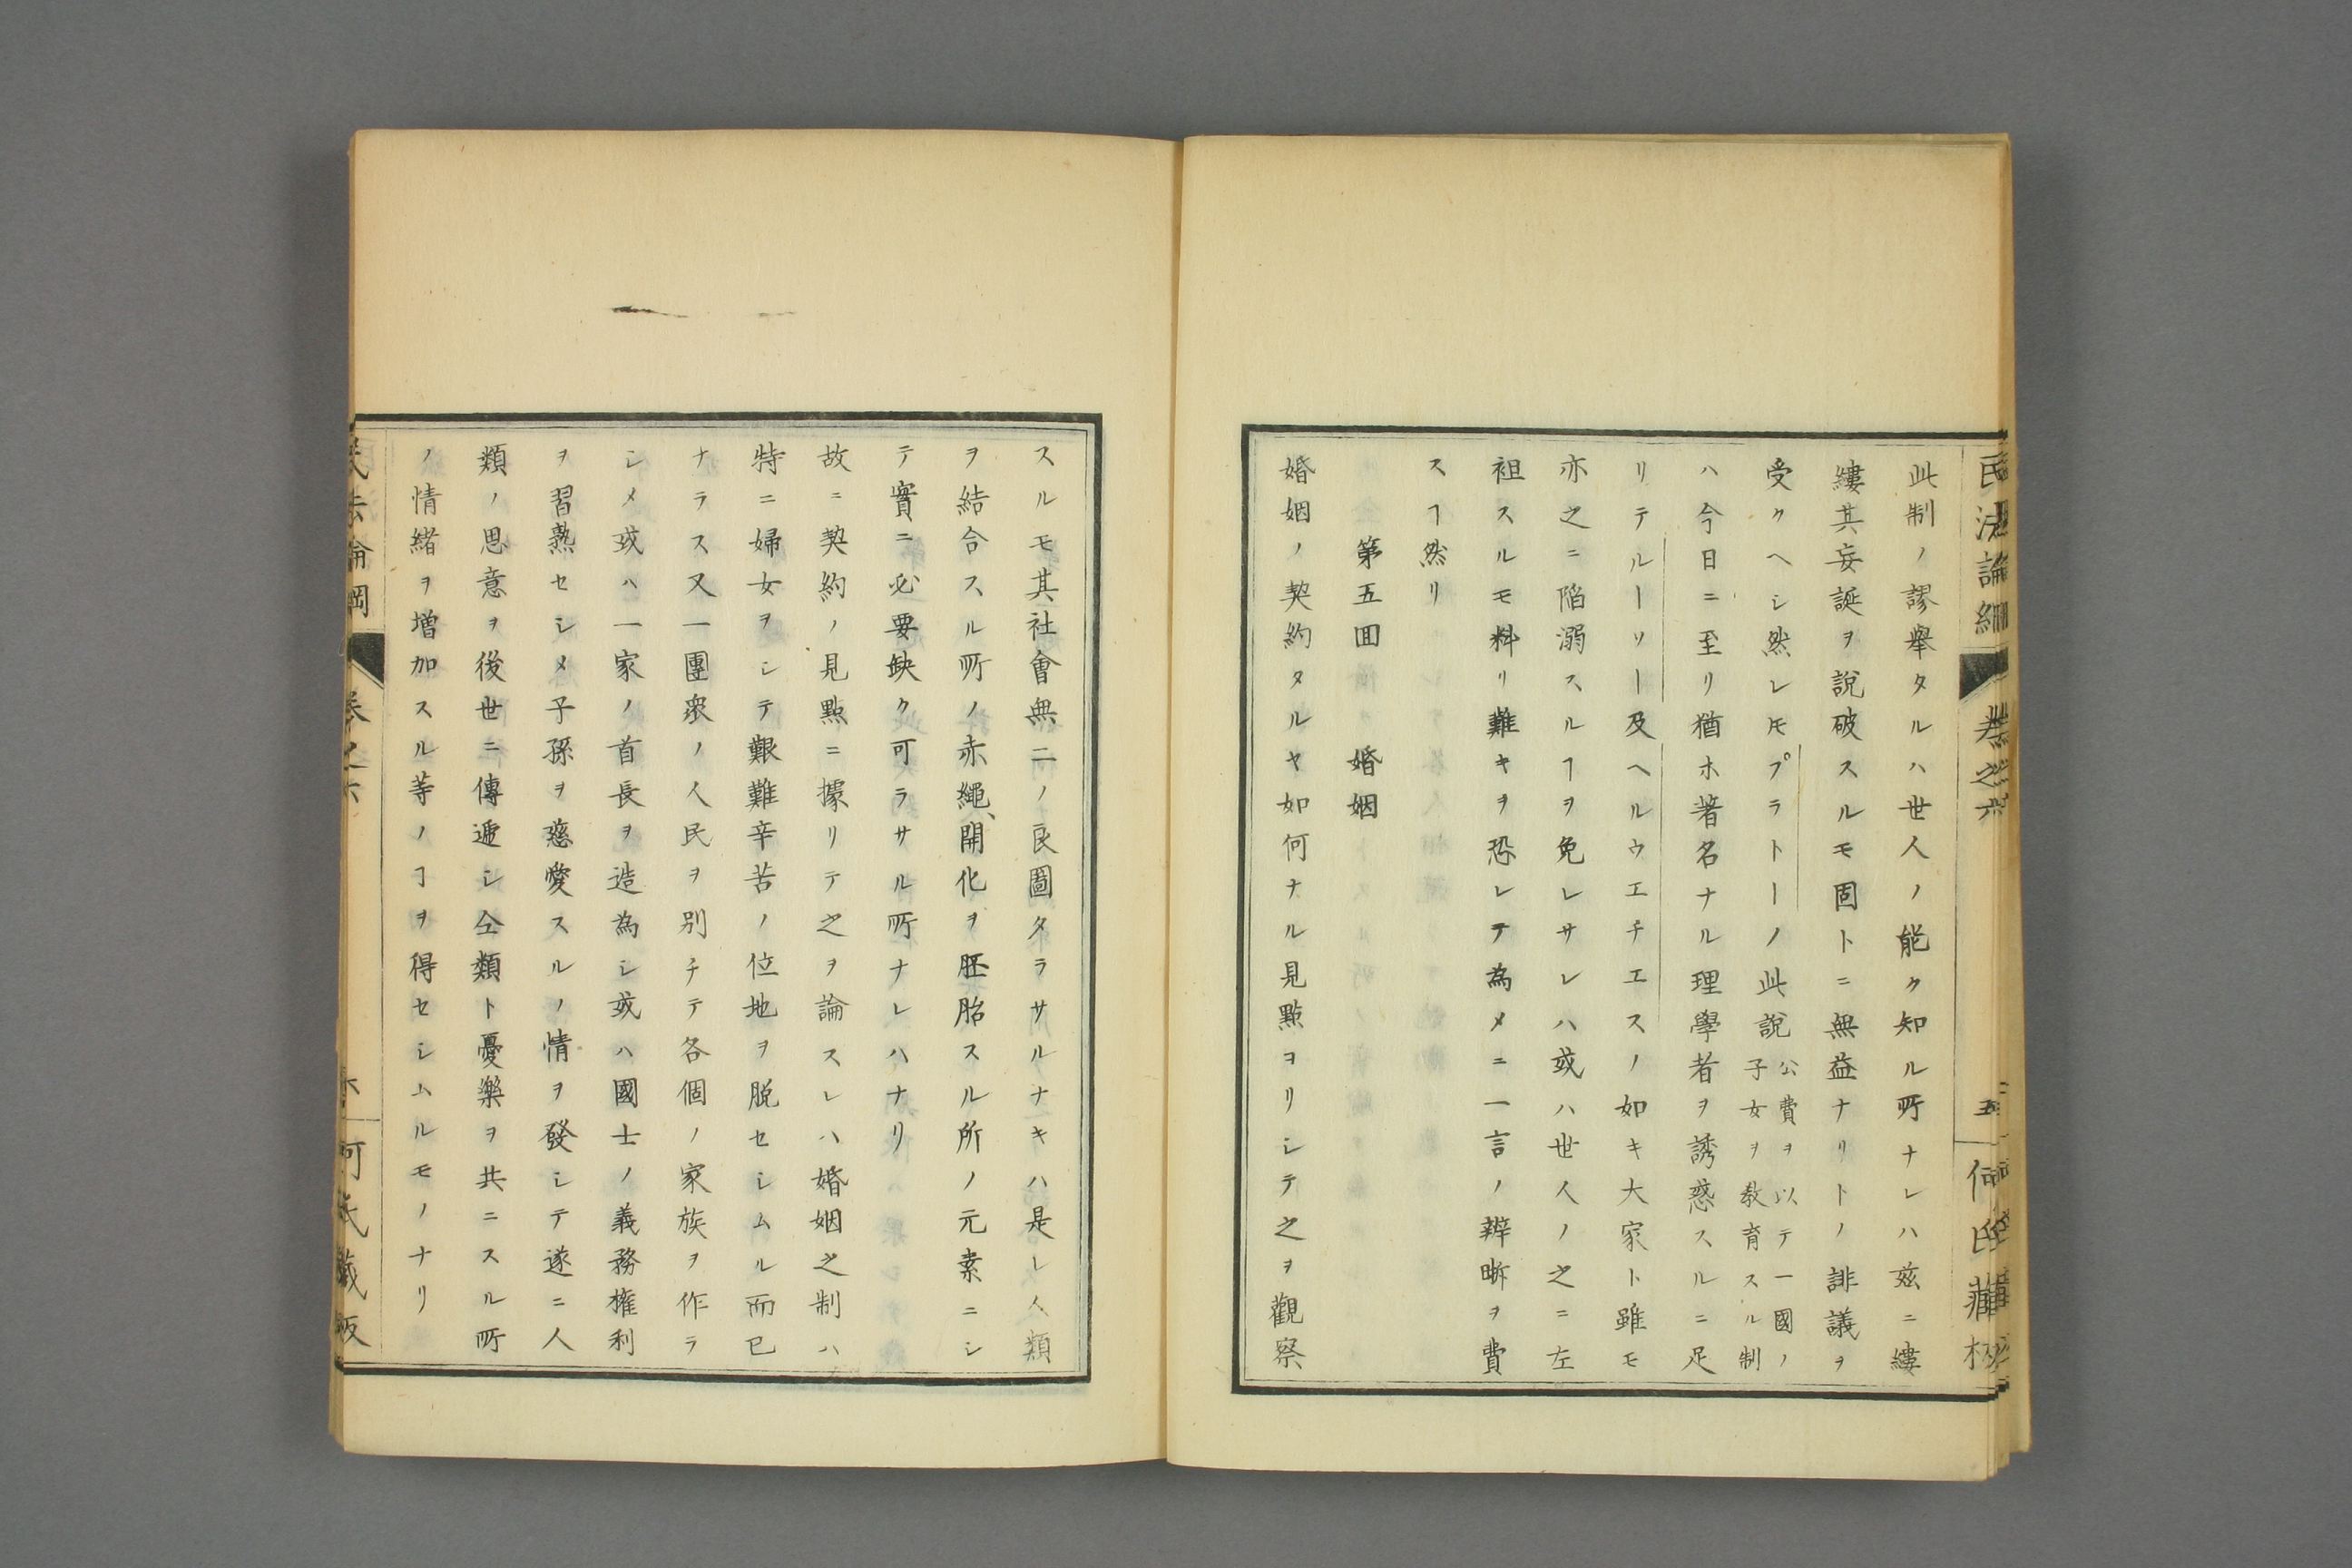 民法論綱
巻之六
五
何氏藏板
此制ノ謬舉タルハ世人ノ能ク知ル所ナレハ玆ニ縷
縷其妄誕ヲ說破スルモ固トニ無益ナリトノ誹議ヲ
受クヘシ然レ𪜈プラトーノ此說公費ヲ以テ一國ノ子女ヲ敎育スル制
ハ今日ニ至リ猶ホ著名ナル理學者ヲ誘惑スルニ足
リテルーソー及ヘルウエチエスノ如キ大家ト雖モ
亦之ニ陷溺スルヿヲ免レサレハ或ハ世人ノ之ニ左
袒スルモ料リ難キヲ恐レテ為メニ一言ノ辨晣ヲ費
スヿ然リ
第五囬　婚姻
婚姻ノ契約タルヤ如何ナル見點ヨリシテ之ヲ觀察
スルモ其社會無二ノ良圖タラサルナキハ是レ人類
ヲ結合スル所ノ赤繩、開化ヲ胚胎スル所ノ元素ニシ
テ實ニ必要缺ク可ラサル所ナレハナリ
故ニ契約ノ見點ニ據リテ之ヲ論スレハ婚姻之制ハ
特ニ婦女ヲシテ艱難辛苦ノ位地ヲ脫セシムル而已
ナラス又一團衆ノ人民ヲ別チテ各個ノ家族ヲ作ラ
シメ或ハ一家ノ首長ヲ造為シ或ハ國士ノ義務權利
ヲ習熟セシメ子孫ヲ慈愛スルノ情ヲ發シテ遂ニ人
類ノ思意ヲ後世ニ傳遞シ仝類ト憂樂ヲ共ニスル所
ノ情緒ヲ增加スル等ノヿヲ得セシムルモノナリ
民法論綱
巻之六
六
何氏藏板